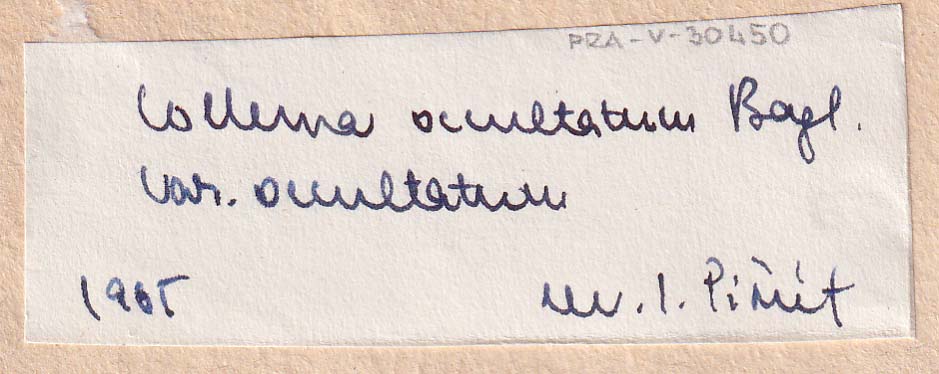 PRA-V-30450
Collema occultatum Bagl.
var. occultatum
rev. I. Pišút